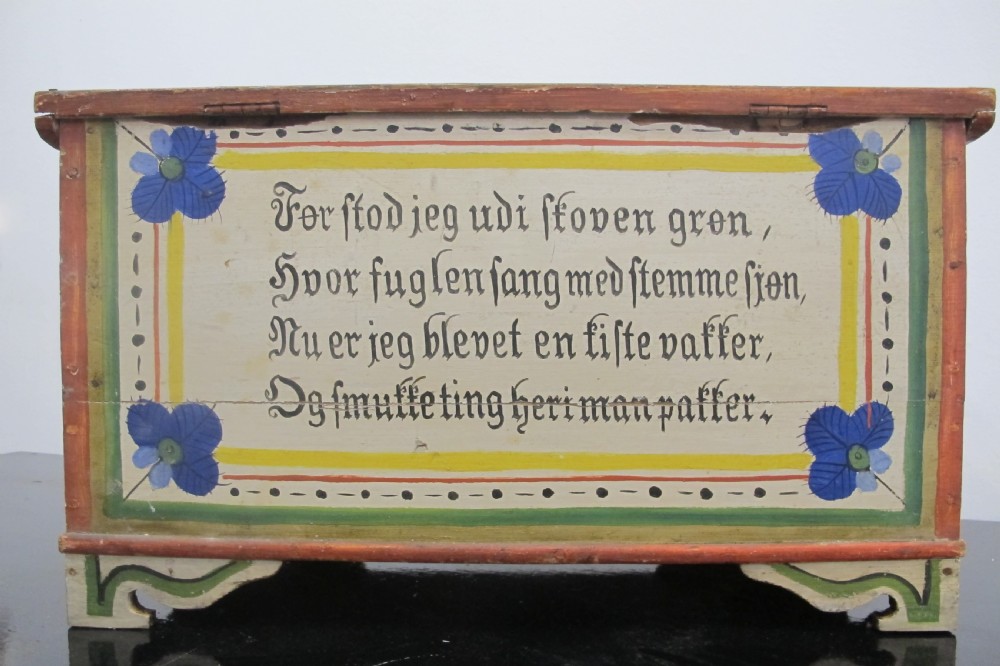 Før stod jeg udi skoven grøn,
Hvor fuglen sang med stemme skjøn,
Nu er jeg blevet en kiste vakker,
Og smukke ting heri man pakker.